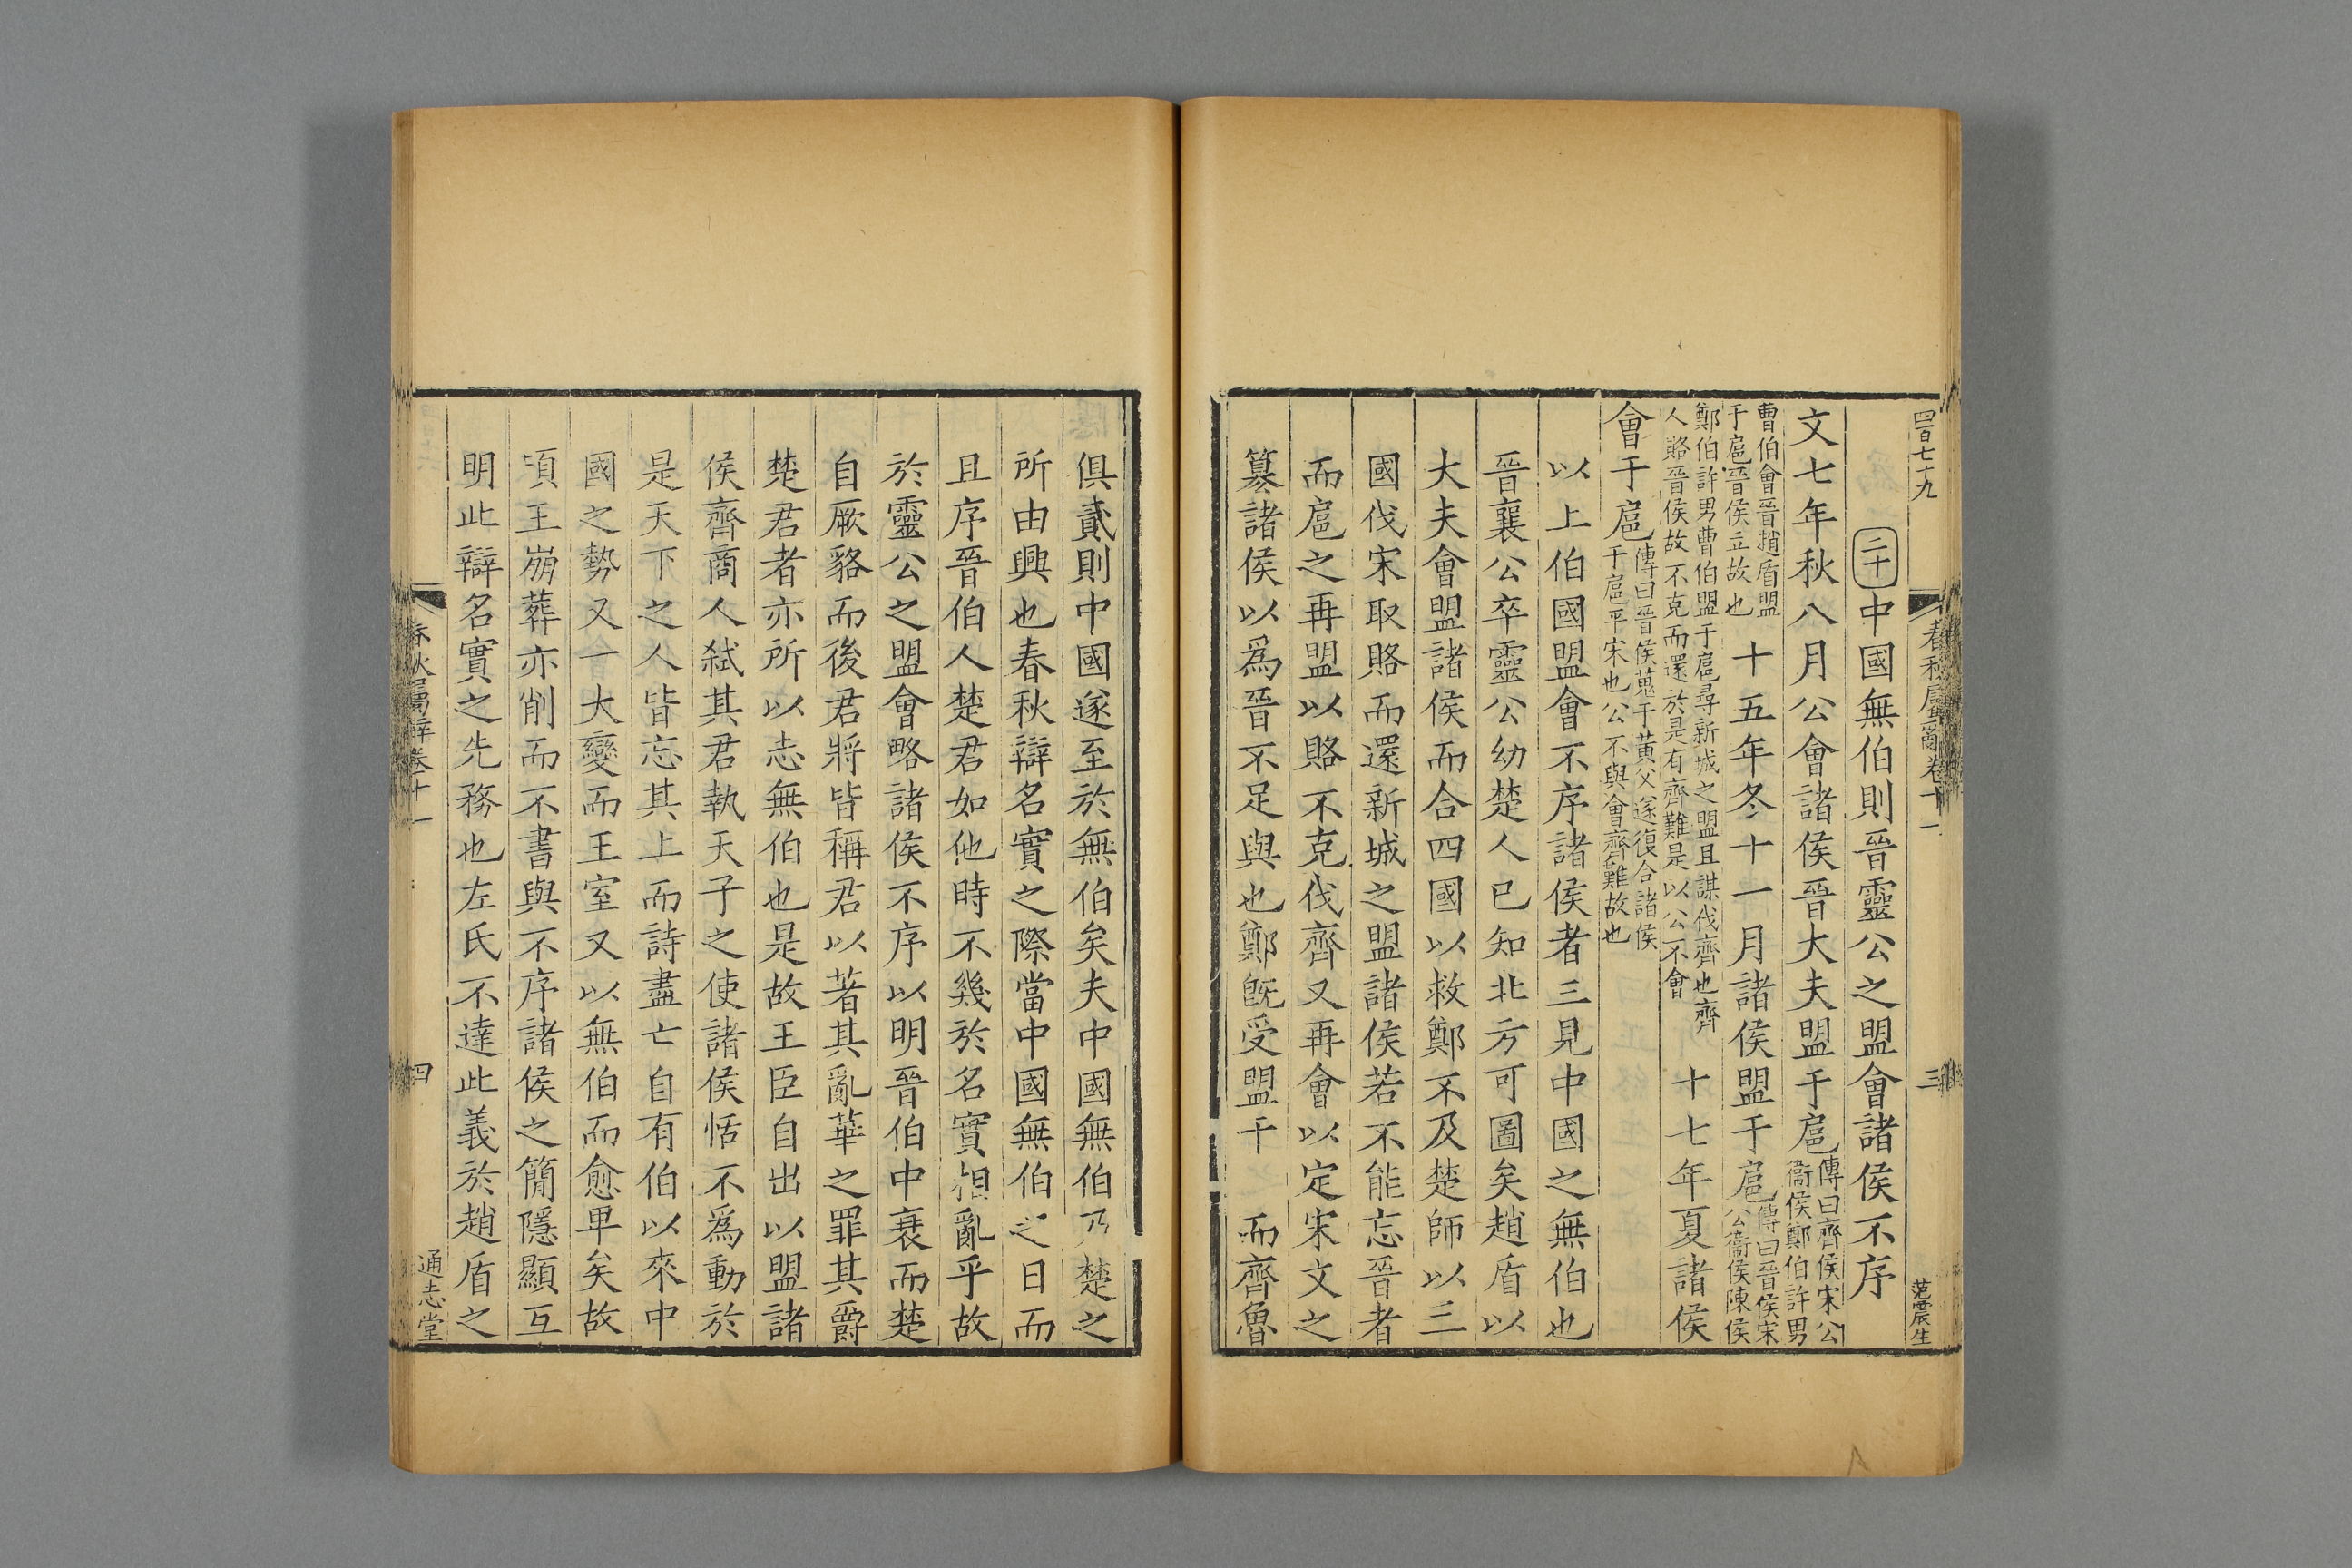 四百七十九
春秋屬辭卷十一
三
范震生
二十中國無伯則晉靈公之盟會諸侯不序
文七年秋八月公會諸侯晉大夫盟于扈傳曰齊侯宋公
衞侯鄭伯許男
曹伯會晉趙盾盟
于扈晉侯立故也十五年冬十一月諸侯盟于扈傳曰晉侯宋
公衞侯陳侯
鄭伯許男曹伯盟于扈尋新城之盟且謀伐齊也齊
人賂晉侯故不克而還於是有齊難是以公不會十七年夏諸侯
會于扈傳曰晉侯蒐于黃父遂復合諸侯
于扈平宋也公不與會齊難故也
以上伯國盟會不序諸侯者三見中國之無伯也
晉襄公卒靈公幼楚人已知北方可圖矣趙盾以
大夫會盟諸侯而合四國以救鄭不及楚師以三
國伐宋取賂而還新城之盟諸侯若不能忘晉者
而扈之再盟以賂不克伐齊又再會以定宋文之
簒諸侯以爲晉不足與也鄭旣受盟于 而齊魯
俱貳則中國遂至於無伯矣夫中國無伯乃楚之
所由興也春秋辯名實之際當中國無伯之日而
且序晉伯人楚君如他時不幾於名實相亂乎故
於靈公之盟會略諸侯不序以明晉伯中衰而楚
自厥貉而後君將皆稱君以著其亂華之罪其爵
楚君者亦所以志無伯也是故王臣自出以盟諸
侯齊商人弑其君執天子之使諸侯恬不爲動於
是天下之人皆忘其上而詩盡亡自有伯以來中
國之勢又一大變而王室又以無伯而愈卑矣故
頃王崩葬亦削而不書與不序諸侯之簡隱顯互
明此辯名實之先務也左氏不達此義於趙盾之
春秋屬辭卷十一
四
通志堂